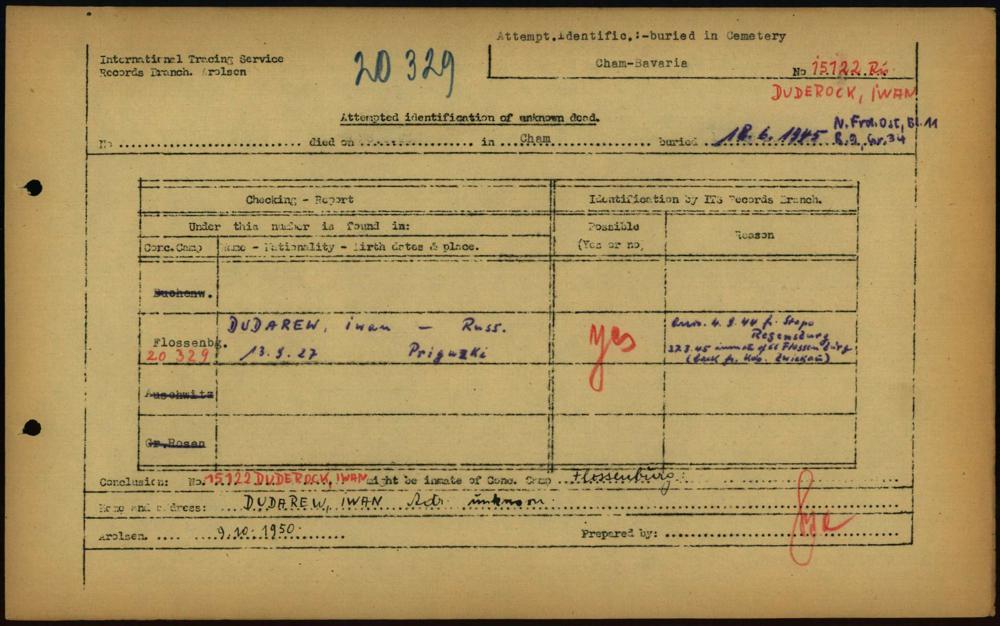 Attempt.identific.:-buried in Cemetery
Cham-Bavaria
International Tracing Service
Records Branch. Arolsen
20 329
No 15122
DUDEROCK, IWAN
Attempted identification of unknown dead.
No ..... died on ..... in ... Cham ..... buried 18.6.1945 N. Frdl. Ost, Bl. 11
R. 9, Gr. 34
Checking - Report
Identification by ITS Records Branch.
Under this number is found in:
Possible
(Yes or no)
Reason
Conc.Camp
Name - Nationality - Birth dates & place.
Buchenw.
Flossenbg.
20 329
DUDAREW, iwan - Russ.
13.9.27 Priguzki
yes
4.9.44 fr. Stapo
Regensburg
27.3.45 inmate of CC Flossenbürg
(back fr. Kdo. Zwickau)
Auschwitz
Gr.Rosen
Conclusion: No. 15122 DUDEROCK, IWAN might be inmate of Conc. Camp .. Flossenbürg
Name and address: DUDAREW, IWAN Adr. unknoon
Arolsen. .... 9.10.1950.
Prepared by: